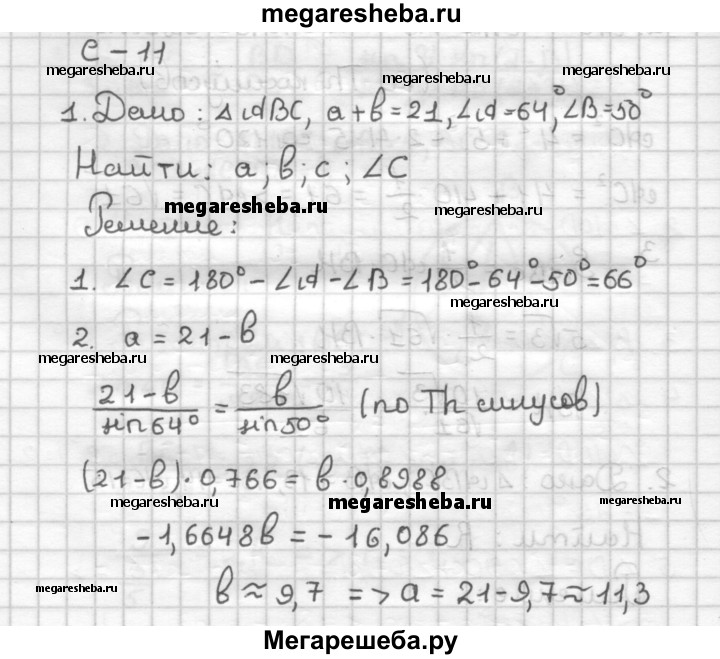 megaresheba.ru
С - 11
megaresheba.ru megaresheba.ru megaresheba.ru
1. Дано: ΔABC, a+b=21, ∠A=64°, ∠B=50°
megaresheba.ru
Найти: a; b; c; ∠C
megaresheba.ru
megaresheba.ru
Решение:
1. ∠C = 180° - ∠A - ∠B = 180° - 64° - 50° = 66°
megaresheba.ru
2. a = 21 - b
megaresheba.ru megaresheba.ru megaresheba.ru
21-b/sin64° = b/sin50° (по Th синусов)
(21-b)·0,766 = b·0,8988
megaresheba.ru megaresheba.ru megaresheba.ru
-1,6648b = -16,086
megaresheba.ru megaresheba.ru megaresheba.ru
b ≈ 9,7 => a = 21-9,7 ≈ 11,3
Мегарешеба.ру